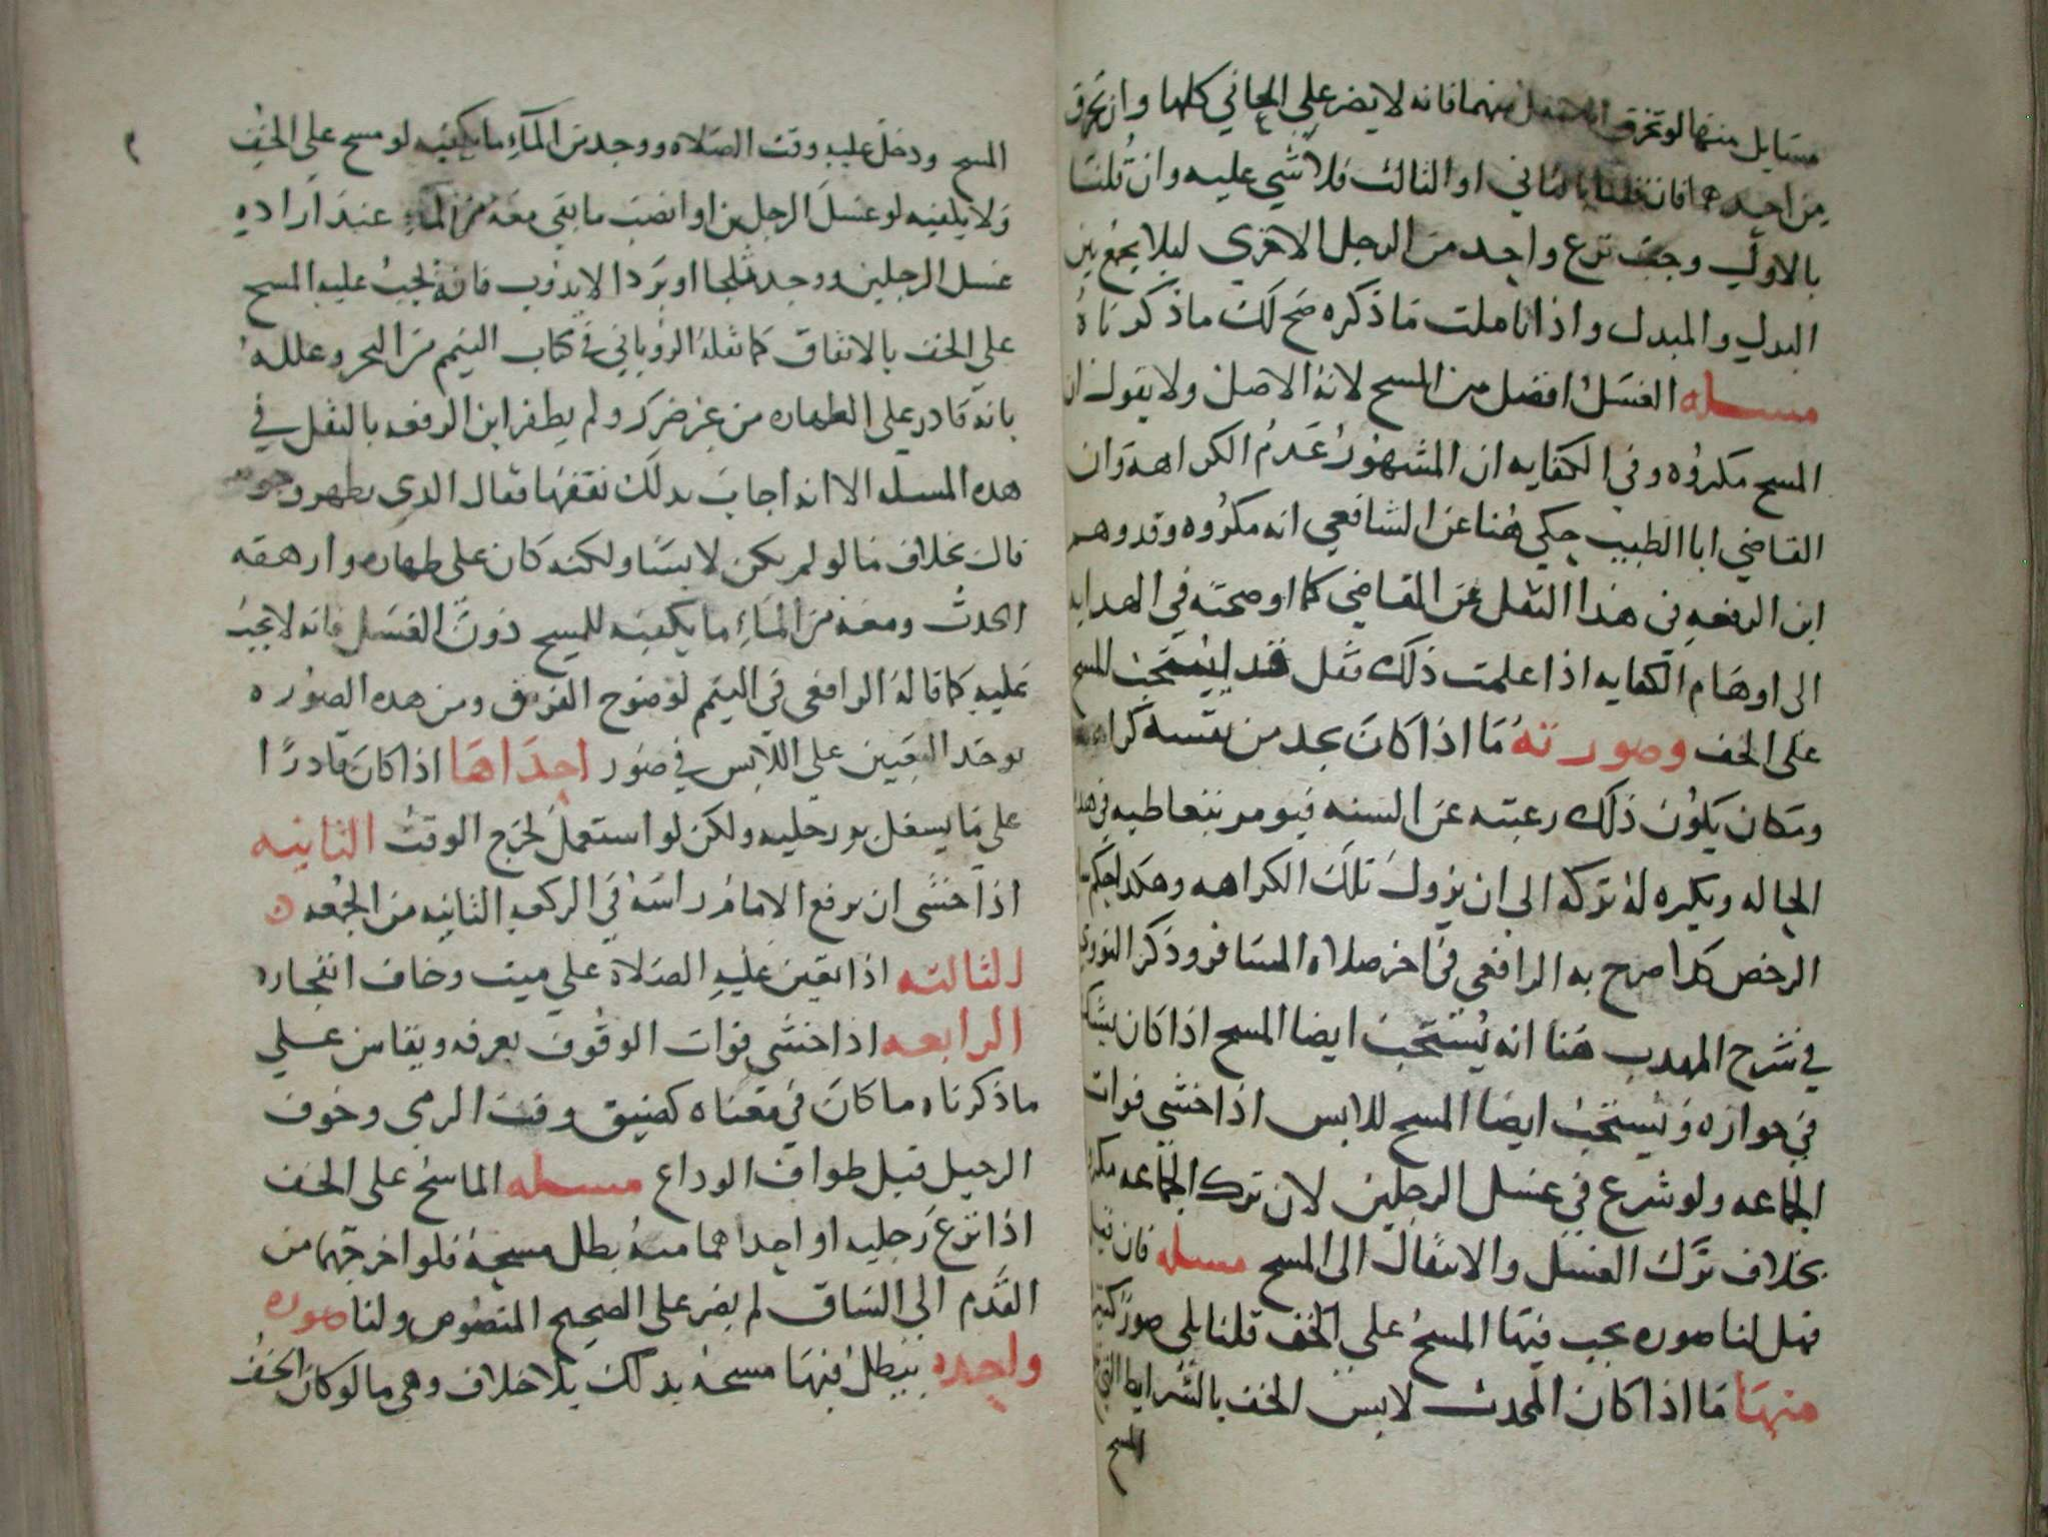 مسايل منها لو تخرق الاسفل منهما فانه لا يضر علي المعاني كلها وان تخرق
من احدهما فان قلنا بالثاني او الثالث فلا شي عليه وان قلنا
بالاول وجب نزع واحد من الرجل الاخري ليلا يجمع بين
البدل والمبدل واذا تاملت ما ذكره صح لك ما ذكرناه
مسله الغسل افضل من المسح لانه الاصل ولا يقول ان
المسح مكروه وفي الكفايه ان المشهور عدم الكراهة وان
القاضي ابا الطيب حكي هنا عن الشافعي انه مكروه وقد وهم
ابن الرفعه في هذا النقل عن القاضي كما اوضحته في الهدايه
الى اوهام الكفايه اذا علمت ذلك فنقل قد يستحب المسح
على الخف وصورته ما اذا كان يجد من نفسه كراهة
وكان يكون ذلك رغبته عن السنه فيومر بتعاطيه في هذه
الحاله ويكره له تركه الى ان يزول تلك الكراهه وهكذا حكم
الرخص كذا صرح به الرافعي في اخر صلاه المسافر وذكر النووي
في شرح المهدب هنا انه يستحب ايضا المسح اذا كان يشك
في جوازه ويستحب ايضا المسح للابس اذا خشي فوات
الجماعه ولو شرع في غسل الرجلين لان ترك الجماعه مكروه
بخلاف ترك الغسل والانتقال الى المسح مسله فان قيل
فهل لنا صوره يجب فيها المسح على الخف قلنا بلي صور كثيرة
منها ما اذا كان المحدث لابس الخف بالشرايط التي
المسح
المسح ودخل عليه وقت الصلاه ووجد من الماء ما يكفيه لو مسح علي الخف
ولا يكفيه لو غسل الرجلين او انصب ما بقي معه من الماء عند اراده
غسل الرجلين ووجد ثلجا او بردا لا يذوب فانه يجب عليه المسح
على الخف بالاتفاق كما نقله الروياني في كتاب التيمم من البحر وعلله
بانه قادر علي الطهاره من غير ضرر ولم يظفر ابن الرفعه بالنقل في
هذه المسله الا انه اجاب بذلك تفقها فقال الذي يظهر وجوبه
قال بخلاف ما لو لم يكن لابسا ولكنه كان على طهاره وارهقه
الحدث ومعه من الماء ما يكفيه للمسح دون الغسل فانه لا يجب
عليه كما قاله الرافعي في التيمم لوضوح الفرق ومن هذه الصوره
يوخذ التعيين علي اللابس في صور احداها اذا كان قادرا
علي ما يغسل به رجليه ولكن لو استعمل لخرج الوقت الثانيه
اذا خشي ان يرفع الامام راسه في الركعه الثانيه من الجمعه
الثالثه اذا تعين عليه الصلاة علي ميت وخاف انفجاره
الرابعه اذا خشي فوات الوقوف بعرفه ويقاس علي
ما ذكرناه ما كان في معناه كضيق وقت الرمي وخوف
الرحيل قبل طواف الوداع مسله الماسح على الخف
اذا نزع رجليه او احداهما منه بطل مسحه فلو اخرجهما من
القدم الى الساق لم يضر على الصحيح المنصوص ولنا صوره
واحده يبطل فيها مسحه بذلك بلا خلاف وهي ما لو كان الخف